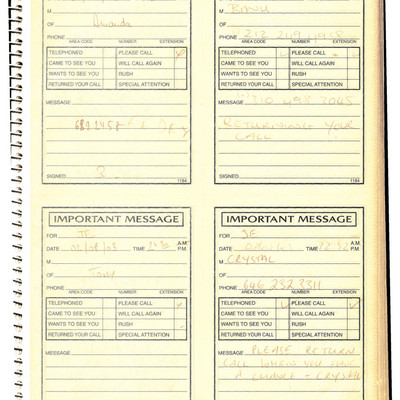 M
OF Amanda
PHONE
AREA CODE NUMBER EXTENSION
TELEPHONED PLEASE CALL
CAME TO SEE YOU WILL CALL AGAIN
WANTS TO SEE YOU RUSH
RETURNED YOUR CALL SPECIAL ATTENTION
MESSAGE
SIGNED
1184
M
OF
PHONE
AREA CODE NUMBER EXTENSION
TELEPHONED PLEASE CALL
CAME TO SEE YOU WILL CALL AGAIN
WANTS TO SEE YOU RUSH
RETURNED YOUR CALL SPECIAL ATTENTION
MESSAGE 310 498 3045
RETURNING YOUR
CALL
SIGNED
1184
IMPORTANT MESSAGE
FOR JE
DATE TIME A.M. P.M.
M
OF Tony
PHONE
AREA CODE NUMBER EXTENSION
TELEPHONED PLEASE CALL
CAME TO SEE YOU WILL CALL AGAIN
WANTS TO SEE YOU RUSH
RETURNED YOUR CALL SPECIAL ATTENTION
MESSAGE
IMPORTANT MESSAGE
FOR JE
DATE TIME A.M. P.M.
M CRYSTAL
OF
PHONE 646 232 3311
AREA CODE NUMBER EXTENSION
TELEPHONED PLEASE CALL
CAME TO SEE YOU WILL CALL AGAIN
WANTS TO SEE YOU RUSH
RETURNED YOUR CALL SPECIAL ATTENTION
MESSAGE PLEASE RETURN
CALL WHEN YOU HAVE
A CHANCE - CRYSTAL